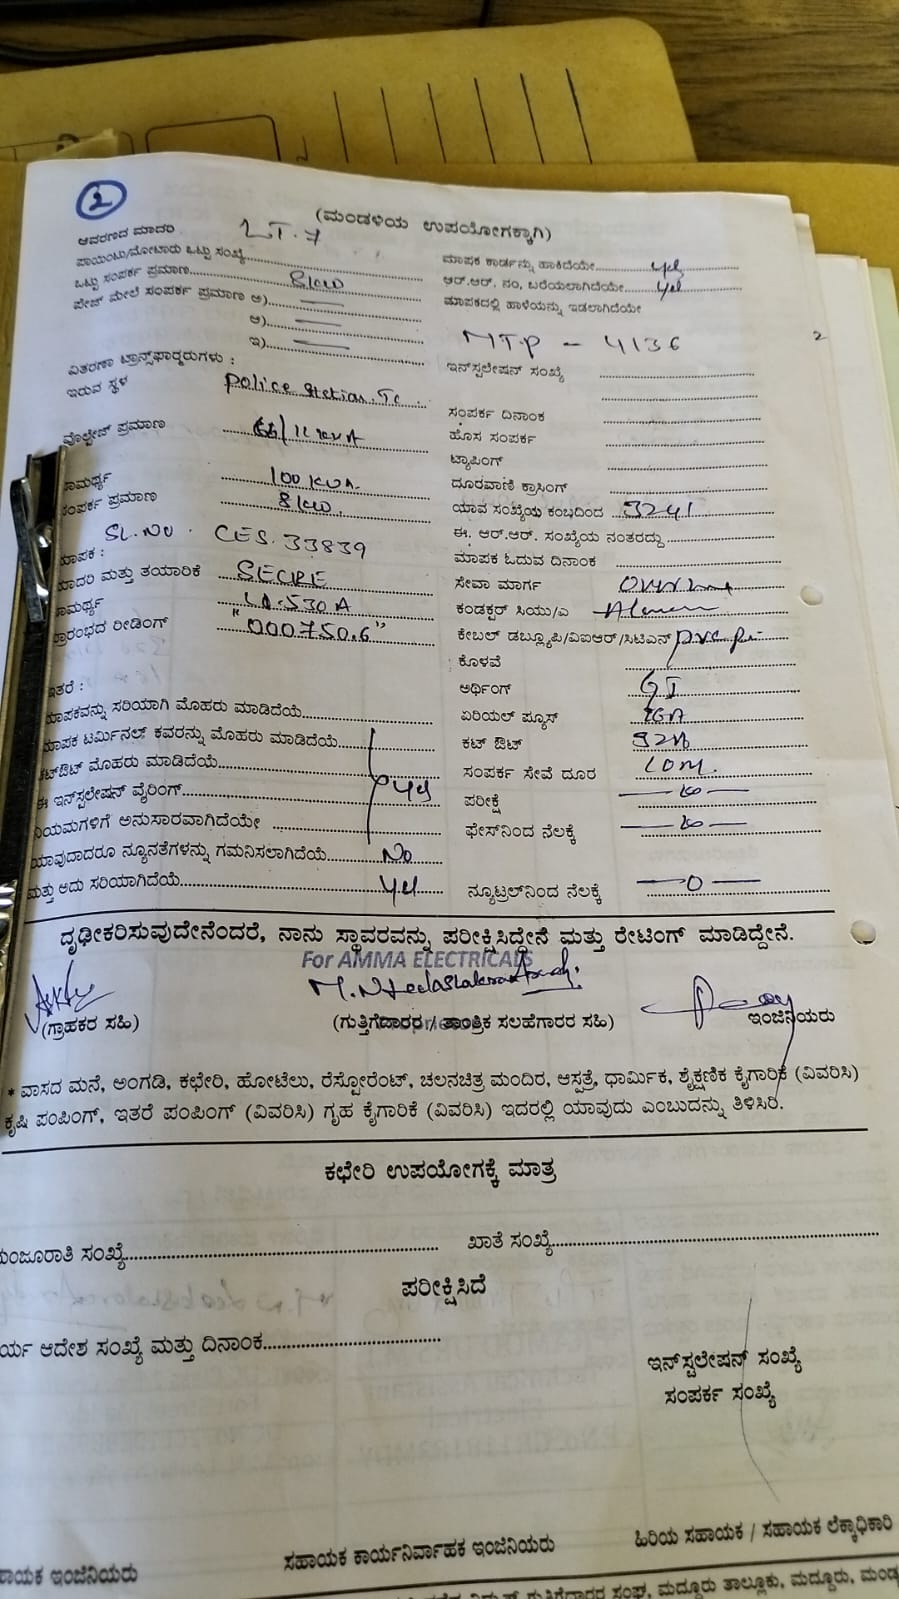 2
(ಮಂಡಳಿಯ ಉಪಯೋಗಕ್ಕಾಗಿ)
ಆವರಣದ ಮಾದರಿ LT.7
ಪಾಯಿಂಟು/ಮೋಟಾರು ಒಟ್ಟು ಸಂಖ್ಯೆ
ಒಟ್ಟು ಸಂಪರ್ಕ ಪ್ರಮಾಣ 8kw
ಫೇಜ್ ಮೇಲೆ ಸಂಪರ್ಕ ಪ್ರಮಾಣ ಅ)
ಆ)
ಇ)
ವಿತರಣಾ ಟ್ರಾನ್ಸ್‌ಫಾರ್ಮರುಗಳು :
ಇರುವ ಸ್ಥಳ Police Station. Tc.
ವೋಲ್ಟೇಜ್ ಪ್ರಮಾಣ 66/11 KVA
ಸಾಮರ್ಥ್ಯ 100 KVA.
ಸಂಪರ್ಕ ಪ್ರಮಾಣ 8kw.
SL.No. CES.33839
ಮಾಪಕ :
ಮಾದರಿ ಮತ್ತು ತಯಾರಿಕೆ SECRE
ಸಾಮರ್ಥ್ಯ
ಪ್ರಾರಂಭದ ರೀಡಿಂಗ್ "000750.6"
ಇತರೆ :
ಮಾಪಕವನ್ನು ಸರಿಯಾಗಿ ಮೊಹರು ಮಾಡಿದೆಯೆ
ಮಾಪಕ ಟರ್ಮಿನಲ್ ಕವರನ್ನು ಮೊಹರು ಮಾಡಿದೆಯೆ
ಕಟ್‌ಔಟ್ ಮೊಹರು ಮಾಡಿದೆಯೆ
ಈ ಇನ್‌ಸ್ಟಲೇಷನ್ ವೈರಿಂಗ್ yes
ನಿಯಮಗಳಿಗೆ ಅನುಸಾರವಾಗಿದೆಯೇ
ಯಾವುದಾದರೂ ನ್ಯೂನತೆಗಳನ್ನು ಗಮನಿಸಲಾಗಿದೆಯೆ No
ಮತ್ತು ಅದು ಸರಿಯಾಗಿದೆಯೆ yes
ಮಾಪಕ ಕಾರ್ಡನ್ನು ಹಾಕಿದೆಯೇ yes
ಆರ್.ಆರ್. ನಂ, ಬರೆಯಲಾಗಿದೆಯೇ yes
ಮಾಪಕದಲ್ಲಿ ಹಾಳೆಯನ್ನು ಇಡಲಾಗಿದೆಯೇ
MTP - 4136
2
ಇನ್‌ಸ್ಟಲೇಷನ್ ಸಂಖ್ಯೆ
ಸಂಪರ್ಕ ದಿನಾಂಕ
ಹೊಸ ಸಂಪರ್ಕ
ಟ್ಯಾಪಿಂಗ್
ದೂರವಾಣಿ ಕ್ರಾಸಿಂಗ್
ಯಾವ ಸಂಖ್ಯೆಯ ಕಂಬದಿಂದ 3241
ಈ. ಆರ್.ಆರ್. ಸಂಖ್ಯೆಯ ನಂತರದ್ದು
ಮಾಪಕ ಓದುವ ದಿನಾಂಕ
ಸೇವಾ ಮಾರ್ಗ
ಕಂಡಕ್ಟರ್ ಸಿಯು/ಎ
ಕೇಬಲ್ ಡಬ್ಲ್ಯೂಪಿ/ವಿಐಆರ್/ಸಿಟಿಎಸ್
ಕೊಳವೆ
ಅರ್ಥಿಂಗ್ GI
ಏರಿಯಲ್ ಫ್ಯೂಸ್
ಕಟ್ ಔಟ್
ಸಂಪರ್ಕ ಸೇವೆ ದೂರ 10m.
ಪರೀಕ್ಷೆ
ಫೇಸ್‌ನಿಂದ ನೆಲಕ್ಕೆ
ನ್ಯೂಟ್ರಲ್‌ನಿಂದ ನೆಲಕ್ಕೆ 0
ದೃಢೀಕರಿಸುವುದೇನೆಂದರೆ, ನಾನು ಸ್ಥಾವರವನ್ನು ಪರೀಕ್ಷಿಸಿದ್ದೇನೆ ಮತ್ತು ರೇಟಿಂಗ್ ಮಾಡಿದ್ದೇನೆ.
For AMMA ELECTRICALS
(ಗ್ರಾಹಕರ ಸಹಿ) (ಗುತ್ತಿಗೆದಾರರ / ತಾಂತ್ರಿಕ ಸಲಹೆಗಾರರ ಸಹಿ) ಇಂಜಿನಿಯರು
* ವಾಸದ ಮನೆ, ಅಂಗಡಿ, ಕಛೇರಿ, ಹೋಟೆಲು, ರೆಸ್ಟೋರೆಂಟ್, ಚಲನಚಿತ್ರ ಮಂದಿರ, ಆಸ್ಪತ್ರೆ, ಧಾರ್ಮಿಕ, ಶೈಕ್ಷಣಿಕ ಕೈಗಾರಿಕೆ (ವಿವರಿಸಿ)
ಕೃಷಿ ಪಂಪಿಂಗ್, ಇತರೆ ಪಂಪಿಂಗ್ (ವಿವರಿಸಿ) ಗೃಹ ಕೈಗಾರಿಕೆ (ವಿವರಿಸಿ) ಇದರಲ್ಲಿ ಯಾವುದು ಎಂಬುದನ್ನು ತಿಳಿಸಿರಿ.
ಕಛೇರಿ ಉಪಯೋಗಕ್ಕೆ ಮಾತ್ರ
ಮಂಜೂರಾತಿ ಸಂಖ್ಯೆ ಖಾತೆ ಸಂಖ್ಯೆ
ಪರೀಕ್ಷಿಸಿದೆ
ರ್ಯ ಆದೇಶ ಸಂಖ್ಯೆ ಮತ್ತು ದಿನಾಂಕ
ಇನ್‌ಸ್ಟಲೇಷನ್ ಸಂಖ್ಯೆ
ಸಂಪರ್ಕ ಸಂಖ್ಯೆ
ಾಯಕ ಇಂಜಿನಿಯರು ಸಹಾಯಕ ಕಾರ್ಯನಿರ್ವಾಹಕ ಇಂಜಿನಿಯರು ಹಿರಿಯ ಸಹಾಯಕ / ಸಹಾಯಕ ಲೆಕ್ಕಾಧಿಕಾರಿ
ಗುತ್ತಿಗೆದಾರರ ಸಂಘ, ಮದ್ದೂರು ತಾಲ್ಲೂಕು, ಮದ್ದೂರು, ಮಂಡ್ಯ